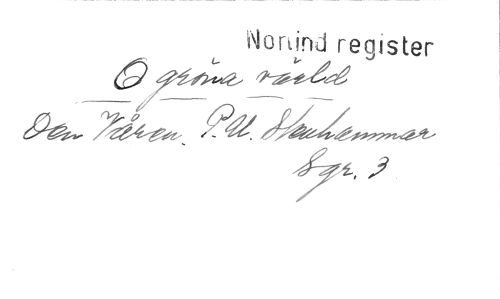 Norlind register
O gröna värld
Om Våren. P.U. Stenhammar
Sgr. 3